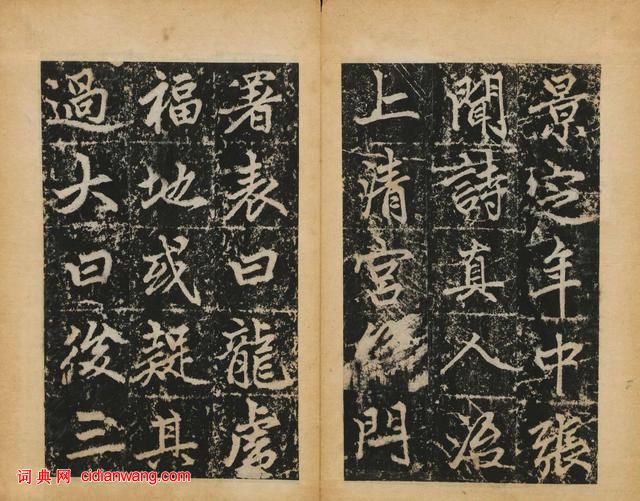 景定年中張
聞詩真人治
上清宮門
署表曰龍虎
福地或疑其
過大曰後三
词典网 cidianwang.com